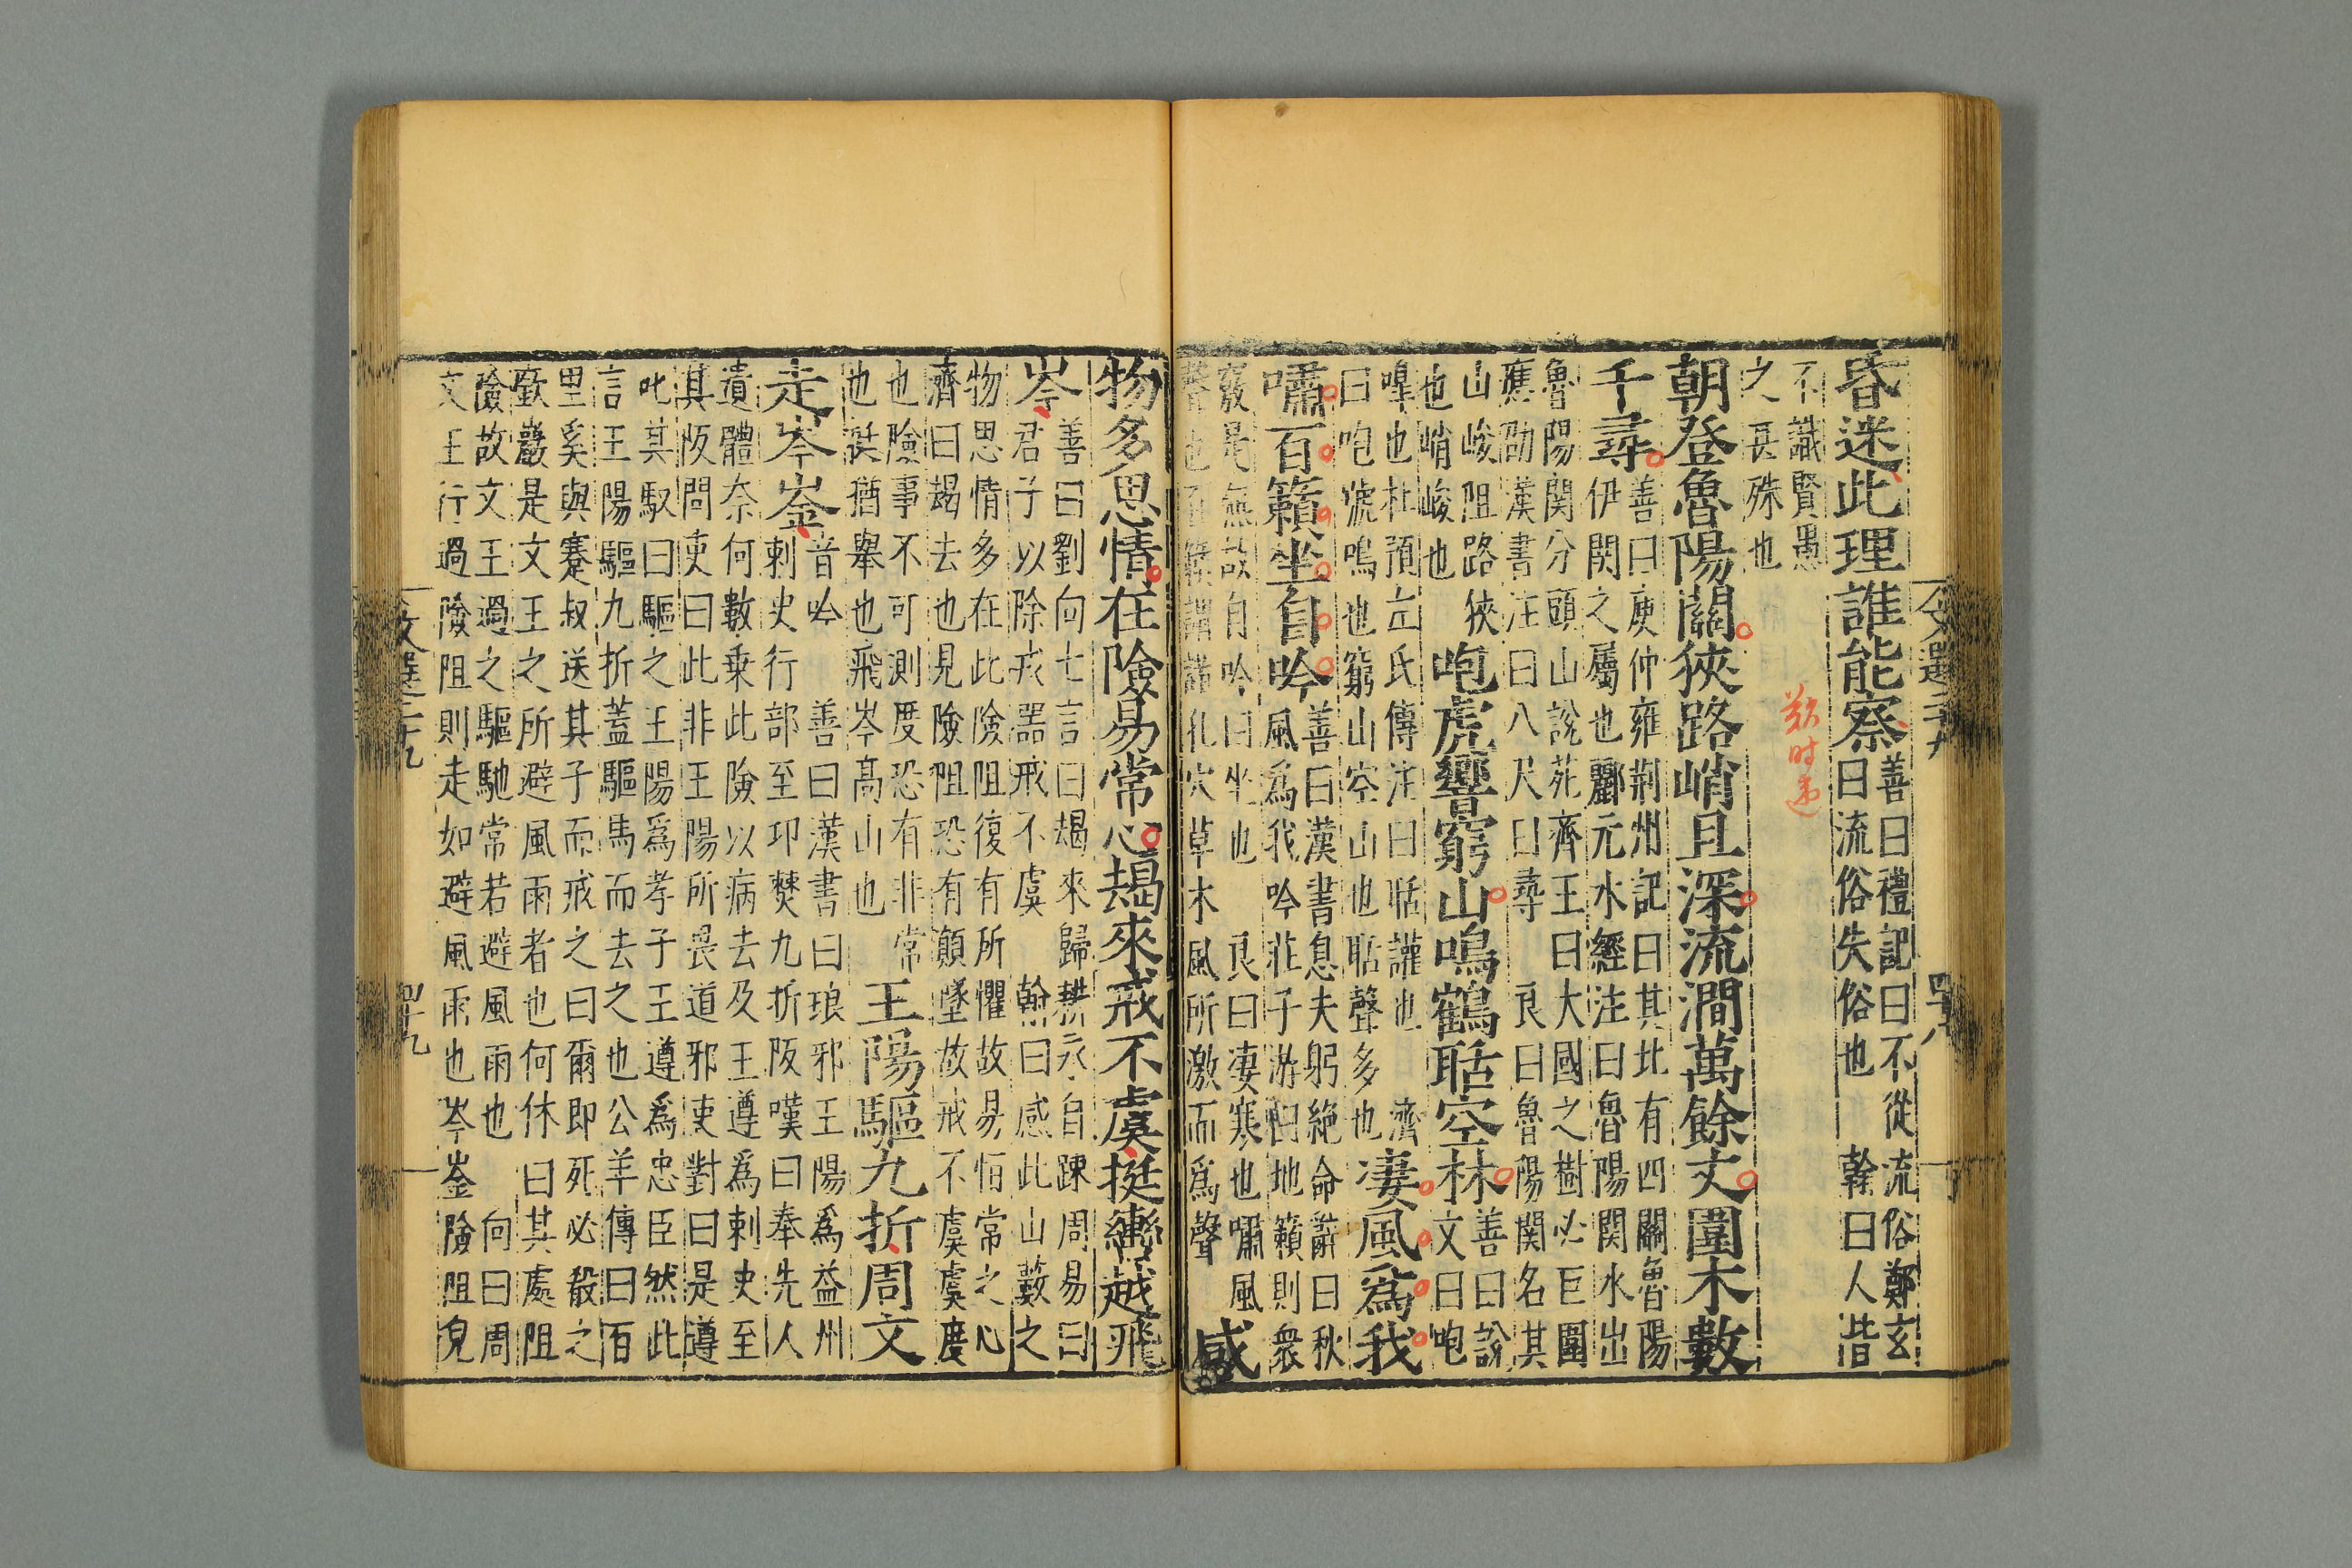 昏迷此理誰能察
善曰禮記曰不從流俗鄭玄
曰流俗失俗也 翰曰人皆
不識賢愚
之殊也
歎时
朝登魯陽關狹路峭且深流澗萬餘丈圍木數
千尋
善曰庾仲雍荆州記曰其北有四關魯陽
伊闕之屬也酈元水經注曰魯陽関水出
魯陽関分頭山說苑齊王曰大國之樹必巨圍
應劭漢書注曰八尺曰尋 良曰魯陽関名其
山峻阻路狹
也峭峻也
咆虎響窮山鳴鶴聒空林
善曰說
文曰咆
嘷也杜預左氏傳注曰聒讙也 濟
曰咆號鳴也窮山空山也聒聲多也
凄風爲我
嘯百籟坐自吟
善曰漢書息夫躬絶命辭曰秋
風爲我吟莊子游曰地籟則衆
竅是無故自吟曰坐也 良曰凄寒也嘯風
聲也百籟謂諸孔穴草木風所激而爲聲
感
物多思情在險易常心朅來戒不虞挺轡越飛
岑
善曰劉向七言曰朅來歸耕永自踈周易曰
君子以除戎器戒不虞 翰曰感此山藪之
物思情多在此險阻復有所懼故易怕常之心
濟曰朅去也見險阻恐有顛墜故戒不虞虞度
也險事不可測度恐有非常
也挺猶舉也飛岑高山也
王陽驅九折周文
走岑崟
音吟 善曰漢書曰琅邪王陽爲益州
刺史行部至卭僰九折阪嘆曰奉先人
遺體奈何數乗此險以病去及王遵爲刺史至
其阪問吏曰此非王陽所畏道邪吏對曰是遵
叱其馭曰驅之王陽爲孝子王遵爲忠臣然此
言王陽驅九折蓋驅馬而去之也公羊傳曰百
里奚與蹇叔送其子而戒之曰爾即死必殽之
嶔巖是文王之所避風雨者也何休曰其處阻
險故文王過之驅馳常若避風雨也 向曰周
文王行過險阻則走如避風雨也岑崟險阻皃
文選二十九
四十八
文選二十九
四十九